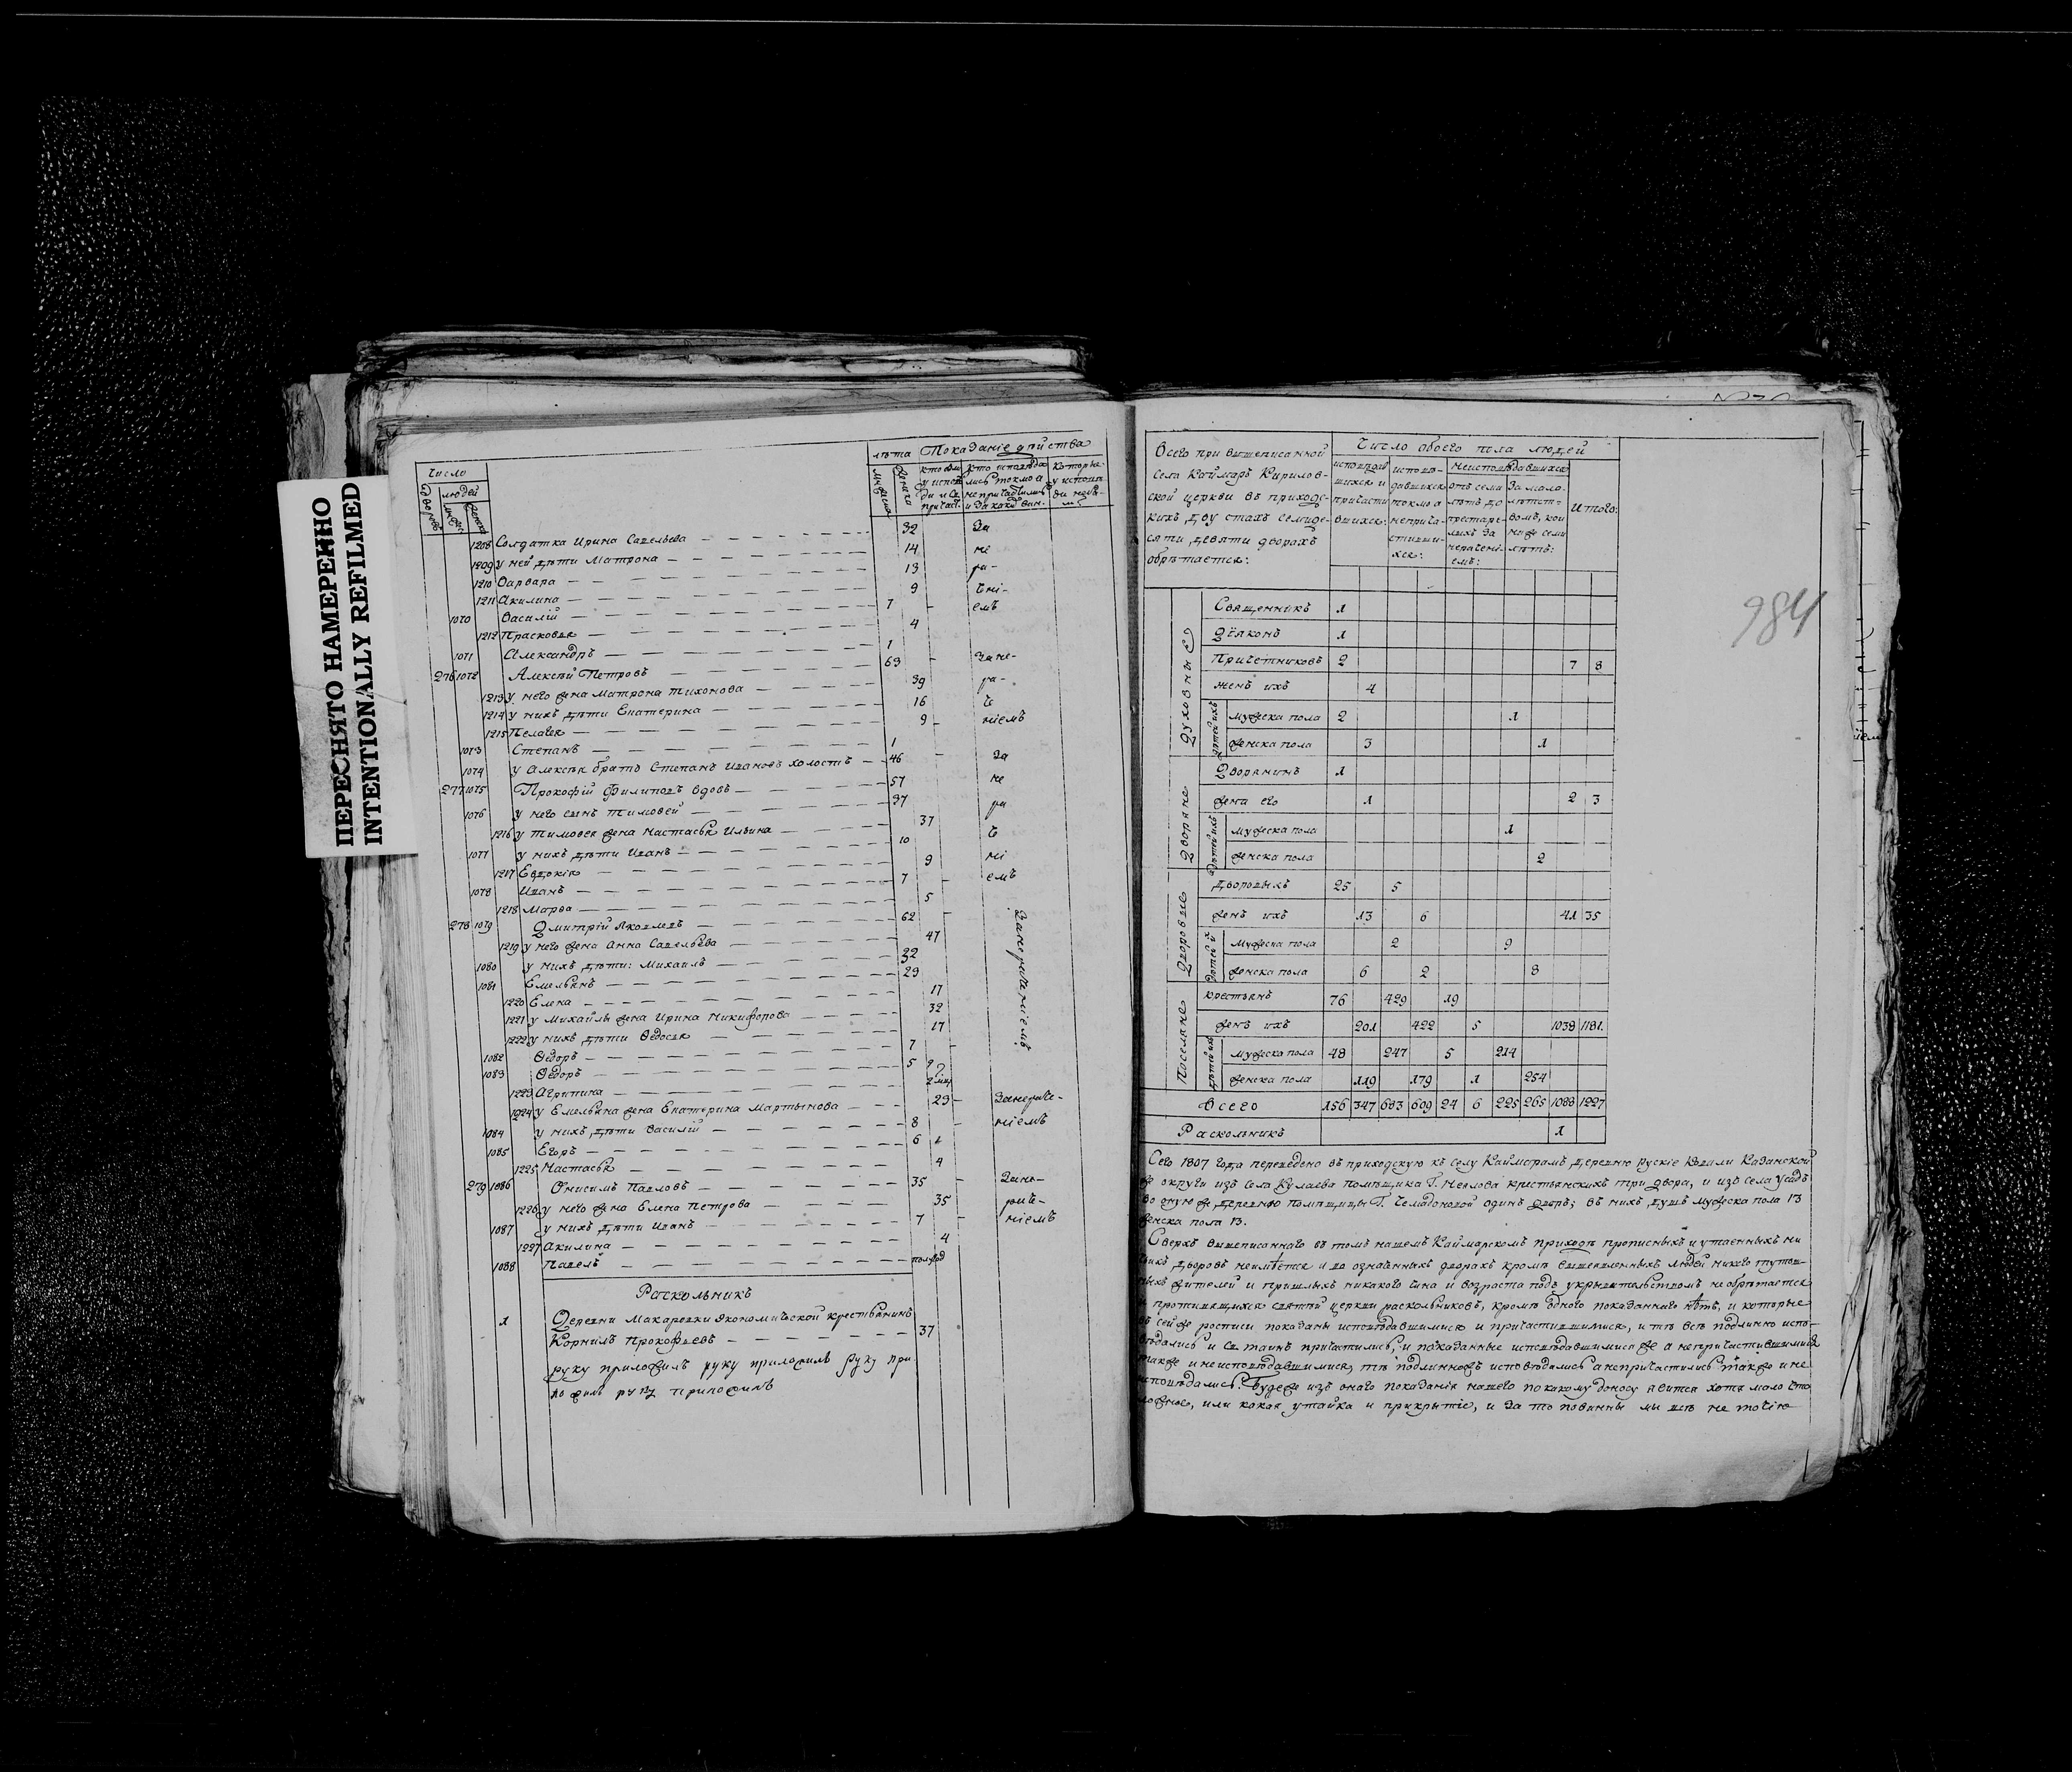 ПЕРЕСНЯТО НАМЕРЕННО
INTENTIONALLY REFILMED
Число
дворовъ
людей
лѣта
Показаніе дѣйства
1208 Солдатка Ирина Савельева 32 За
1209 у ней дѣти Матрона 14 не
1210 Варвара 13 ра-
1211 Акилина 9 чні-
1070 Василій 7 емъ
1212 Прасковья 4
1071 Александръ 1
276 1072 Алексѣй Петровъ 63 Зане-
1213 у него жена Матрона Тихонова 39 ра-
1214 у нихъ дѣти Екатерина 16 че
1215 Пелагея 9 ніемъ
1073 Степанъ 1
1074 у Алексѣя братъ Степанъ Ивановъ холостъ 46 За
277 1075 Прокофій Филиповъ вдовъ 57 не
1076 у него сынъ Тимовей 37 ра
1216 у Тимовея жена Настасья Ильина 37 че
1077 у нихъ дѣти Иванъ 10 ні
1217 Евдокія 9 емъ
1078 Иванъ 7
1218 Марва 5
278 1079 Дмитрій Яковлевъ 62 Занераченіемъ
1219 у него жена Анна Савельева 47
1080 у нихъ дѣти: Михаилъ 32
1081 Емельянъ 29
1220 Елена 17
1221 у Михайлы жена Ирина Никифорова 32
1222 у нихъ дѣти Ѳедосья 17
1082 Ѳедоръ 7
1083 Ѳедоръ 5
1223 Агрипина
1924 у Емельяна жена Екатерина Мартынова 29 Занераче-
1084 у нихъ дѣти Василій 8 ніемъ
1085 Егоръ 6
1225 Настасья 4
279 1086 Онисимъ Павловъ 35 Зане-
1226 у него жена Елена Петрова 35 раче-
1087 у нихъ дѣти Иванъ 7 ніемъ
1227 Акилина 4
1088 Павелъ полгод
Раскольникъ
1 Деревни Макаровки Экономической крестьянинъ
Корнилъ Прокофьевъ 37
руку приложилъ руку приложилъ руку при
ложилъ руку приложилъ
984
Всего при вышеписанной
села Каймаръ Кирилов-
ской церкви въ приходс-
кихъ двустахъ семиде-
сяти девяти дворахъ
обрѣтается:
Число обоего пола людей
исповѣдав-
шихся и
причасти
вшихся:
исповѣ-
давшихся
токмо а
неприча-
стивши-
хся:
Неисповѣдавшихся
отъ семи
лѣтъ до
престаре-
лыхъ за
нерачені-
емъ:
За мало-
лѣтст-
вомъ, кои
ниже семи
лѣтъ:
Итого:
Духовныѣ
Священникъ 1
Діяконъ 1
Причетниковъ 2 7 8
Женъ ихъ 4
дѣтей ихъ
мужеска пола 2 1
женска пола 3 1
Дворяне
Дворянинъ 1
жена его 1 2 3
дѣтей ихъ
мужеска пола 1
женска пола 2
Дворовые
Дворовыхъ 25 5
женъ ихъ 13 6 41 35
дѣтей их
мужеска пола 2 9
женска пола 6 2 8
Поселяне
Крестьянъ 76 429 19
женъ ихъ 201 422 5 1038 1181
дѣтей ихъ
мужеска пола 48 247 5 214
женска пола 119 179 1 254
Всего 156 347 683 609 24 6 225 265 1088 1227
Раскольникъ 1
Сего 1807 года переведено въ приходскую къ селу Каймарамъ деревню Рускіе Ковали Казанской
же округи изъ села Кулаева помѣщика Г. Неялова крестьянскихъ три двора, и изъ села Усадъ
во оную же деревню помѣщицы Г. Чемадоновой одинъ дворъ; въ нихъ душъ мужеска пола 13
женска пола 13.
Сверхъ вышеписаннаго въ томъ нашемъ Каймарскомъ приходѣ прописныхъ и утаенныхъ ни
чьихъ дворовъ неимѣется и во означенныхъ дворахъ кромѣ вышеявленныхъ людей никого тутош-
ныхъ жителей и пришлыхъ никакого чина и возраста подъ укрывательствомъ не обрѣтается
и противящихся святой церкви раскольниковъ, кромѣ одного показаннаго нѣтъ, и которые
въ сей же росписи показаны исповѣдавшимися и причастившимися, и тѣ всѣ подлинно испо-
вѣдались и св таинъ причастились; и показанные исповѣдавшимися же а непричастившимися
также и неисповѣдавшимися, тѣ подлиножъ исповѣдались а непричастились также и не
исповѣдались. Будеже изъ онаго показанія нашего по какому доносу явится хотя мало что
ложное, или какая утайка и прикрытіе, и за то повинны мы всѣ не точію